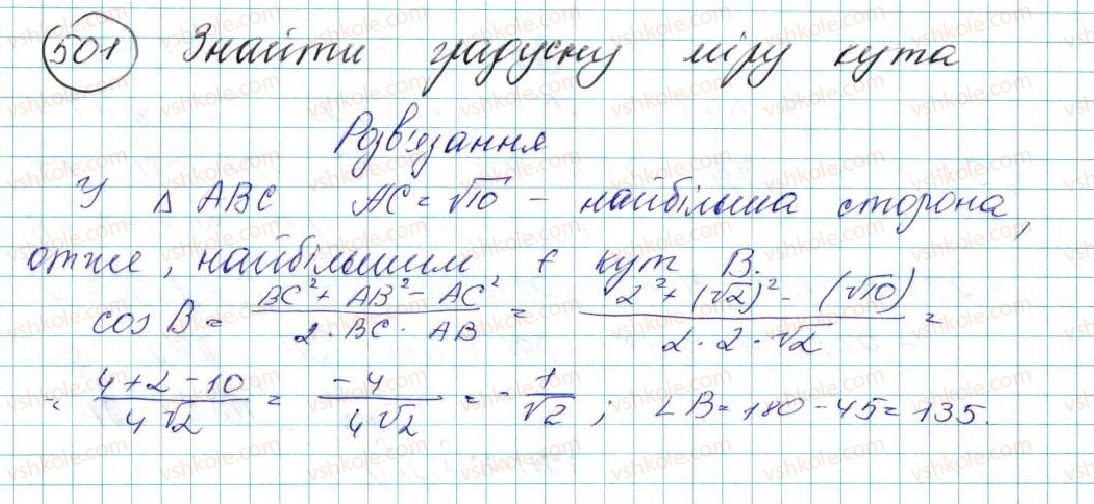 501 Знайти градусну міру кута
Розв'язання
У △ABC AC = √10 - найбільша сторона,
отже, найбільшим є кут B.
cos B = (BC² + AB² - AC²)/(2 · BC · AB) = (2² + (√2)² - (√10))/(2 · 2 · √2) =
= (4 + 2 - 10)/(4√2) = (-4)/(4√2) = -1/√2; ∠B = 180 - 45 = 135.